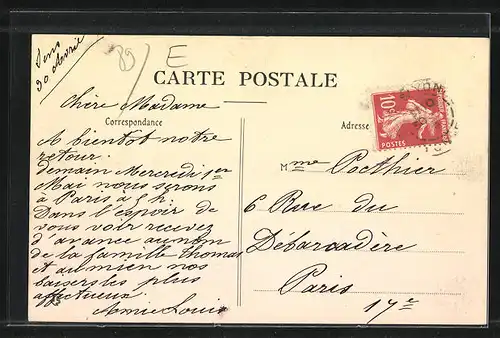 Sens
30 Avril
89/ E
CARTE POSTALE
Correspondance
Adresse
10c
POSTES
YONNE
Chère Madame
A bientot notre
retour.
Demain Mercredi 1er
Mai nous serons
à Paris à 5 h.
Dans l'espoir de
vous voir recevez
d'avance au nom
de la famille Thomas
et au mien nos
baisers les plus
affectueux.
Amie Louise
Mme Pothier
6 Rue du
Débarcadère
Paris
17e